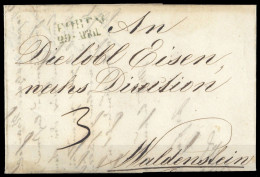 An
Die löbl Eisen,
werks Direction
3
Waldenstein